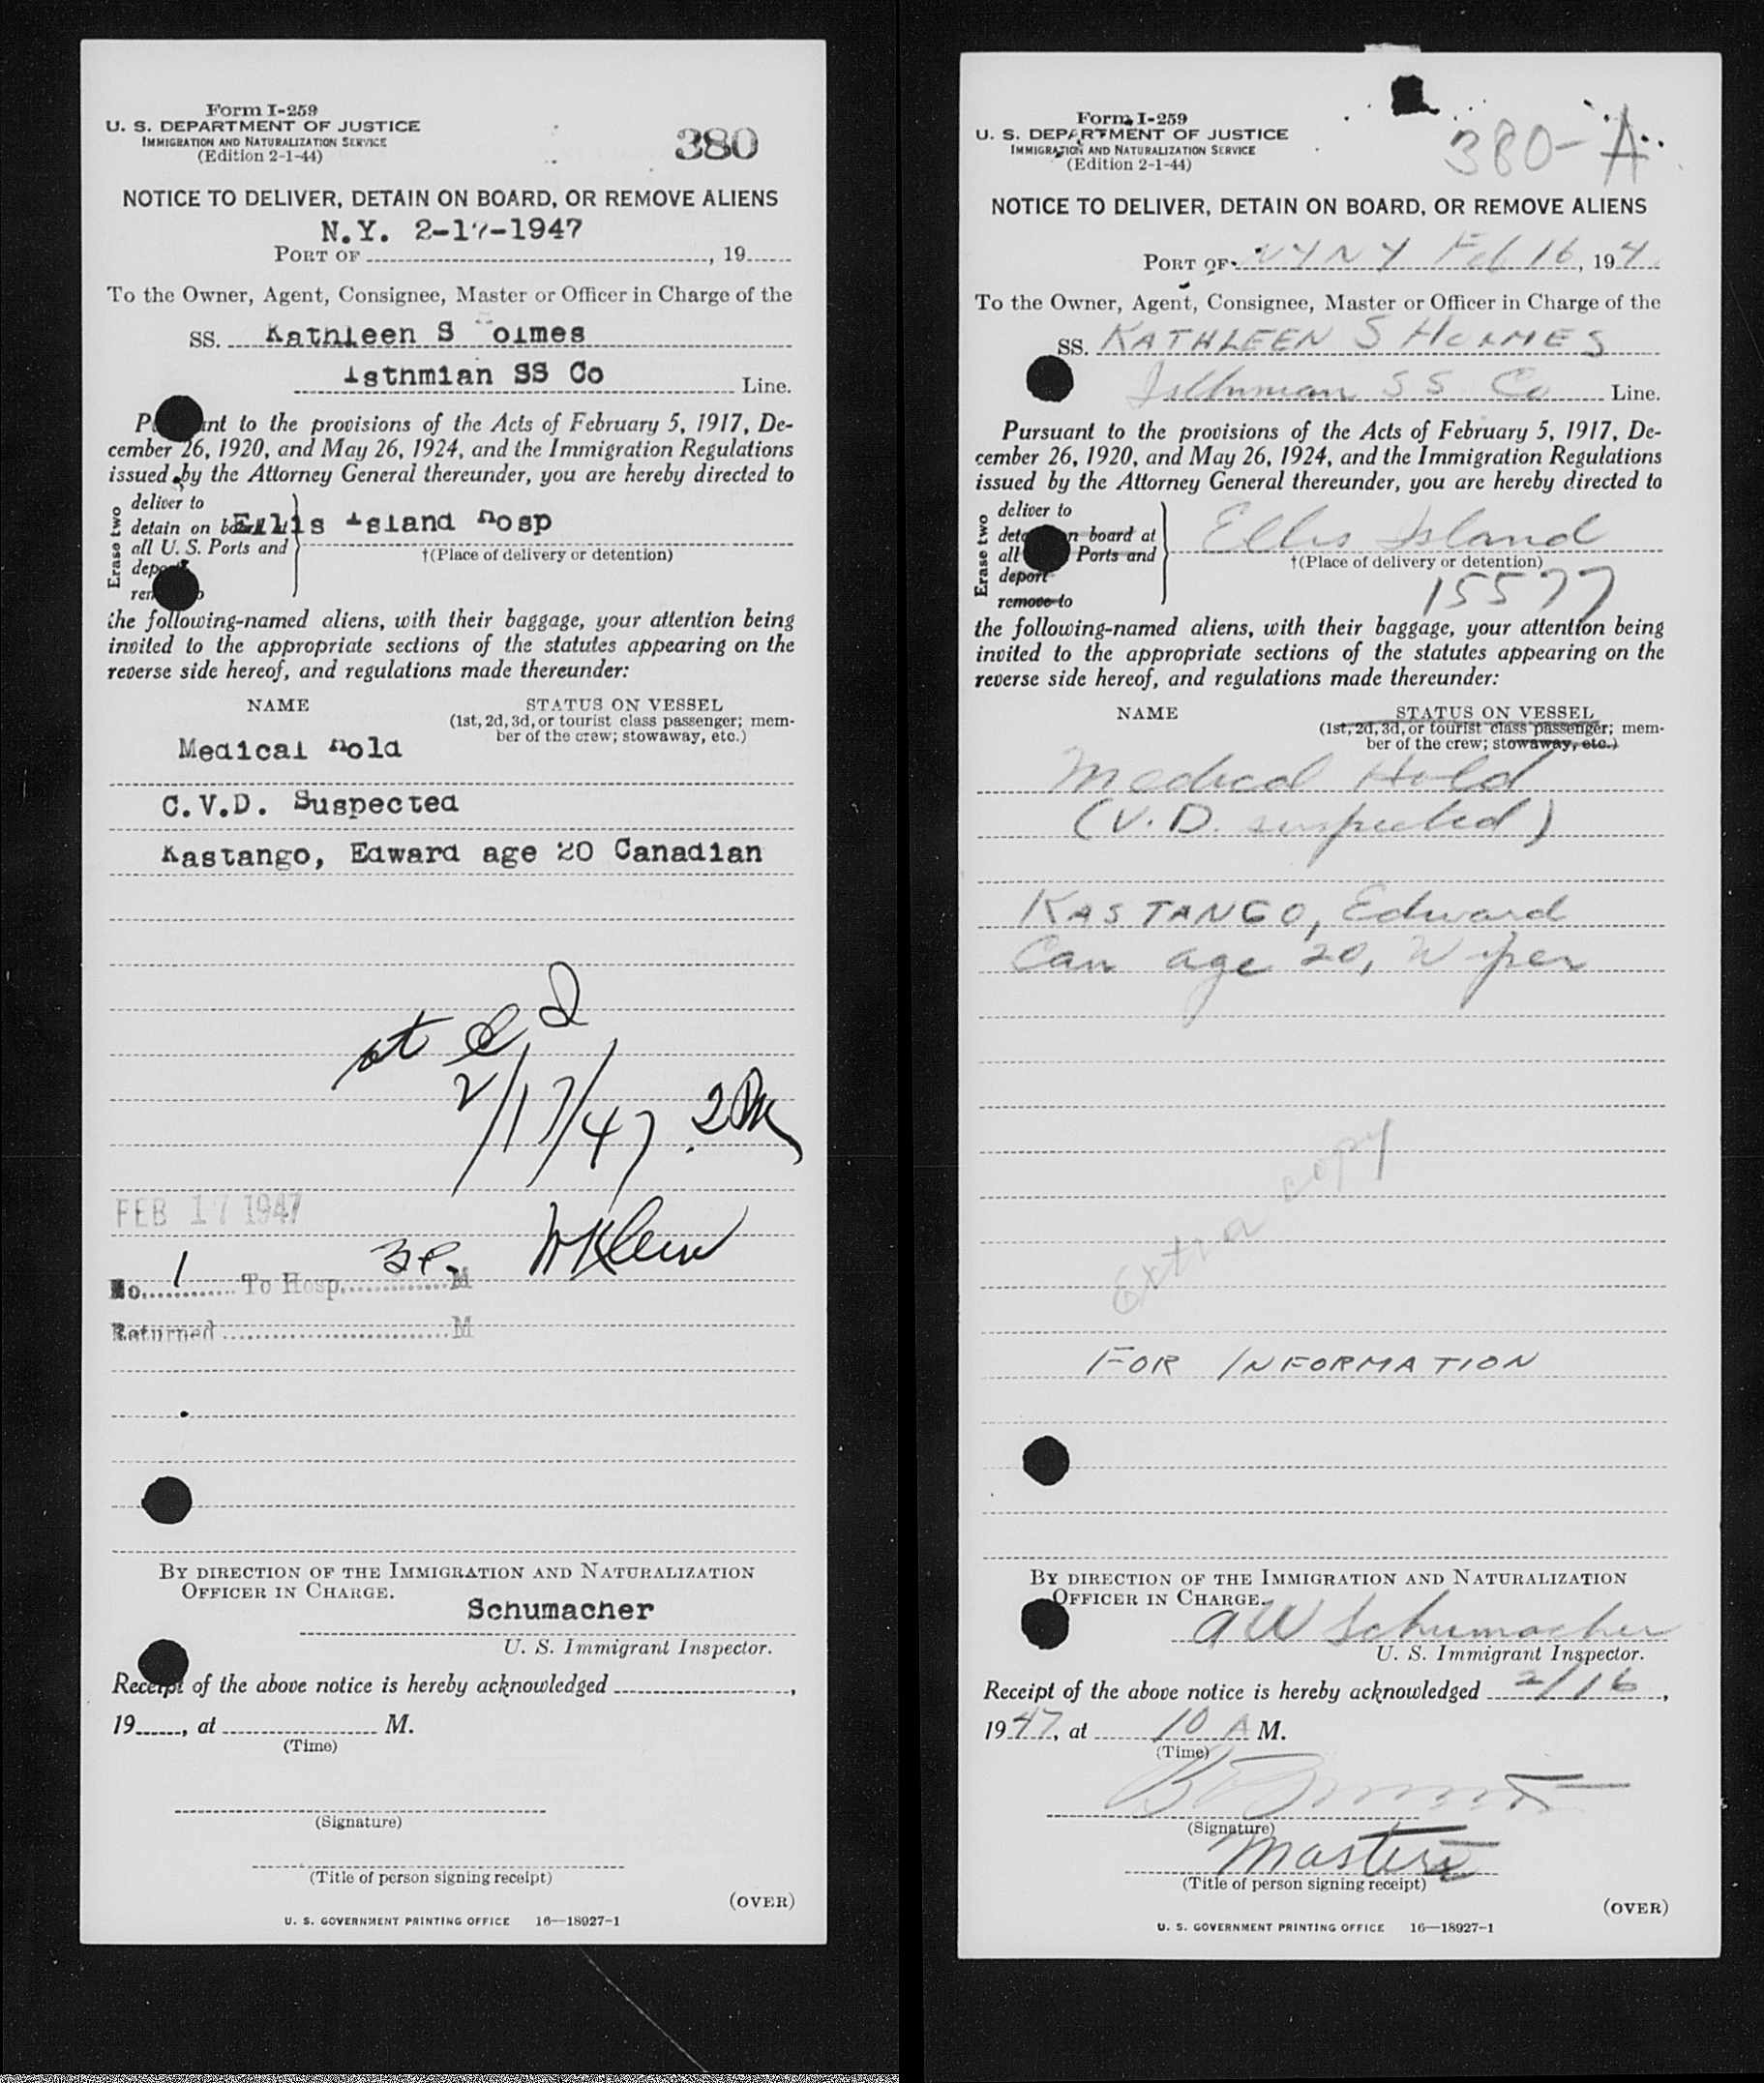 Form I-259
U. S. DEPARTMENT OF JUSTICE
IMMIGRATION AND NATURALIZATION SERVICE
(Edition 2-1-44)
380
NOTICE TO DELIVER, DETAIN ON BOARD, OR REMOVE ALIENS
N.Y. 2-17-1947
PORT OF , 19
To the Owner, Agent, Consignee, Master or Officer in Charge of the
SS. Kathleen S olmes
Isthmian SS Co Line.
P ant to the provisions of the Acts of February 5, 1917, De-
cember 26, 1920, and May 26, 1924, and the Immigration Regulations
issued by the Attorney General thereunder, you are hereby directed to
Erase two
deliver to
detain on board at
all U. S. Ports and
deport
rem o
Ellis Island Hosp
†(Place of delivery or detention)
the following-named aliens, with their baggage, your attention being
invited to the appropriate sections of the statutes appearing on the
reverse side hereof, and regulations made thereunder:
NAME STATUS ON VESSEL
(1st, 2d, 3d, or tourist class passenger; mem-
ber of the crew; stowaway, etc.)
Medical Hold
C.V.D. Suspected
Kastango, Edward age 20 Canadian
at
2/17/47 2PM
FEB 17 1947
No. 1 To Hosp. 3P. M
Klein
Returned M
BY DIRECTION OF THE IMMIGRATION AND NATURALIZATION
OFFICER IN CHARGE.
Schumacher
U. S. Immigrant Inspector.
Receipt of the above notice is hereby acknowledged ,
19 , at M.
(Time)
(Signature)
(Title of person signing receipt)
(OVER)
U. S. GOVERNMENT PRINTING OFFICE 16—18927-1
Form I-259
U. S. DEPARTMENT OF JUSTICE
IMMIGRATION AND NATURALIZATION SERVICE
(Edition 2-1-44)
380-A
NOTICE TO DELIVER, DETAIN ON BOARD, OR REMOVE ALIENS
PORT OF NYNY Feb 16, 194
To the Owner, Agent, Consignee, Master or Officer in Charge of the
SS. KATHLEEN S HOLMES
Isthmian SS Co Line.
Pursuant to the provisions of the Acts of February 5, 1917, De-
cember 26, 1920, and May 26, 1924, and the Immigration Regulations
issued by the Attorney General thereunder, you are hereby directed to
Erase two
deliver to
deta n board at
all Ports and
deport
remove to
Ellis Island
†(Place of delivery or detention)
15577
the following-named aliens, with their baggage, your attention being
invited to the appropriate sections of the statutes appearing on the
reverse side hereof, and regulations made thereunder:
NAME STATUS ON VESSEL
(1st, 2d, 3d, or tourist class passenger; mem-
ber of the crew; stowaway, etc.)
Medical Hold
(V.D. suspected)
KASTANGO, Edward
Can age 20, Wiper
Extra copy
FOR INFORMATION
BY DIRECTION OF THE IMMIGRATION AND NATURALIZATION
OFFICER IN CHARGE.
A W Schumacher
U. S. Immigrant Inspector.
Receipt of the above notice is hereby acknowledged 2/16,
1947, at 10 A M.
(Time)
(Signature)
Master
(Title of person signing receipt)
(OVER)
U. S. GOVERNMENT PRINTING OFFICE 16—18927-1